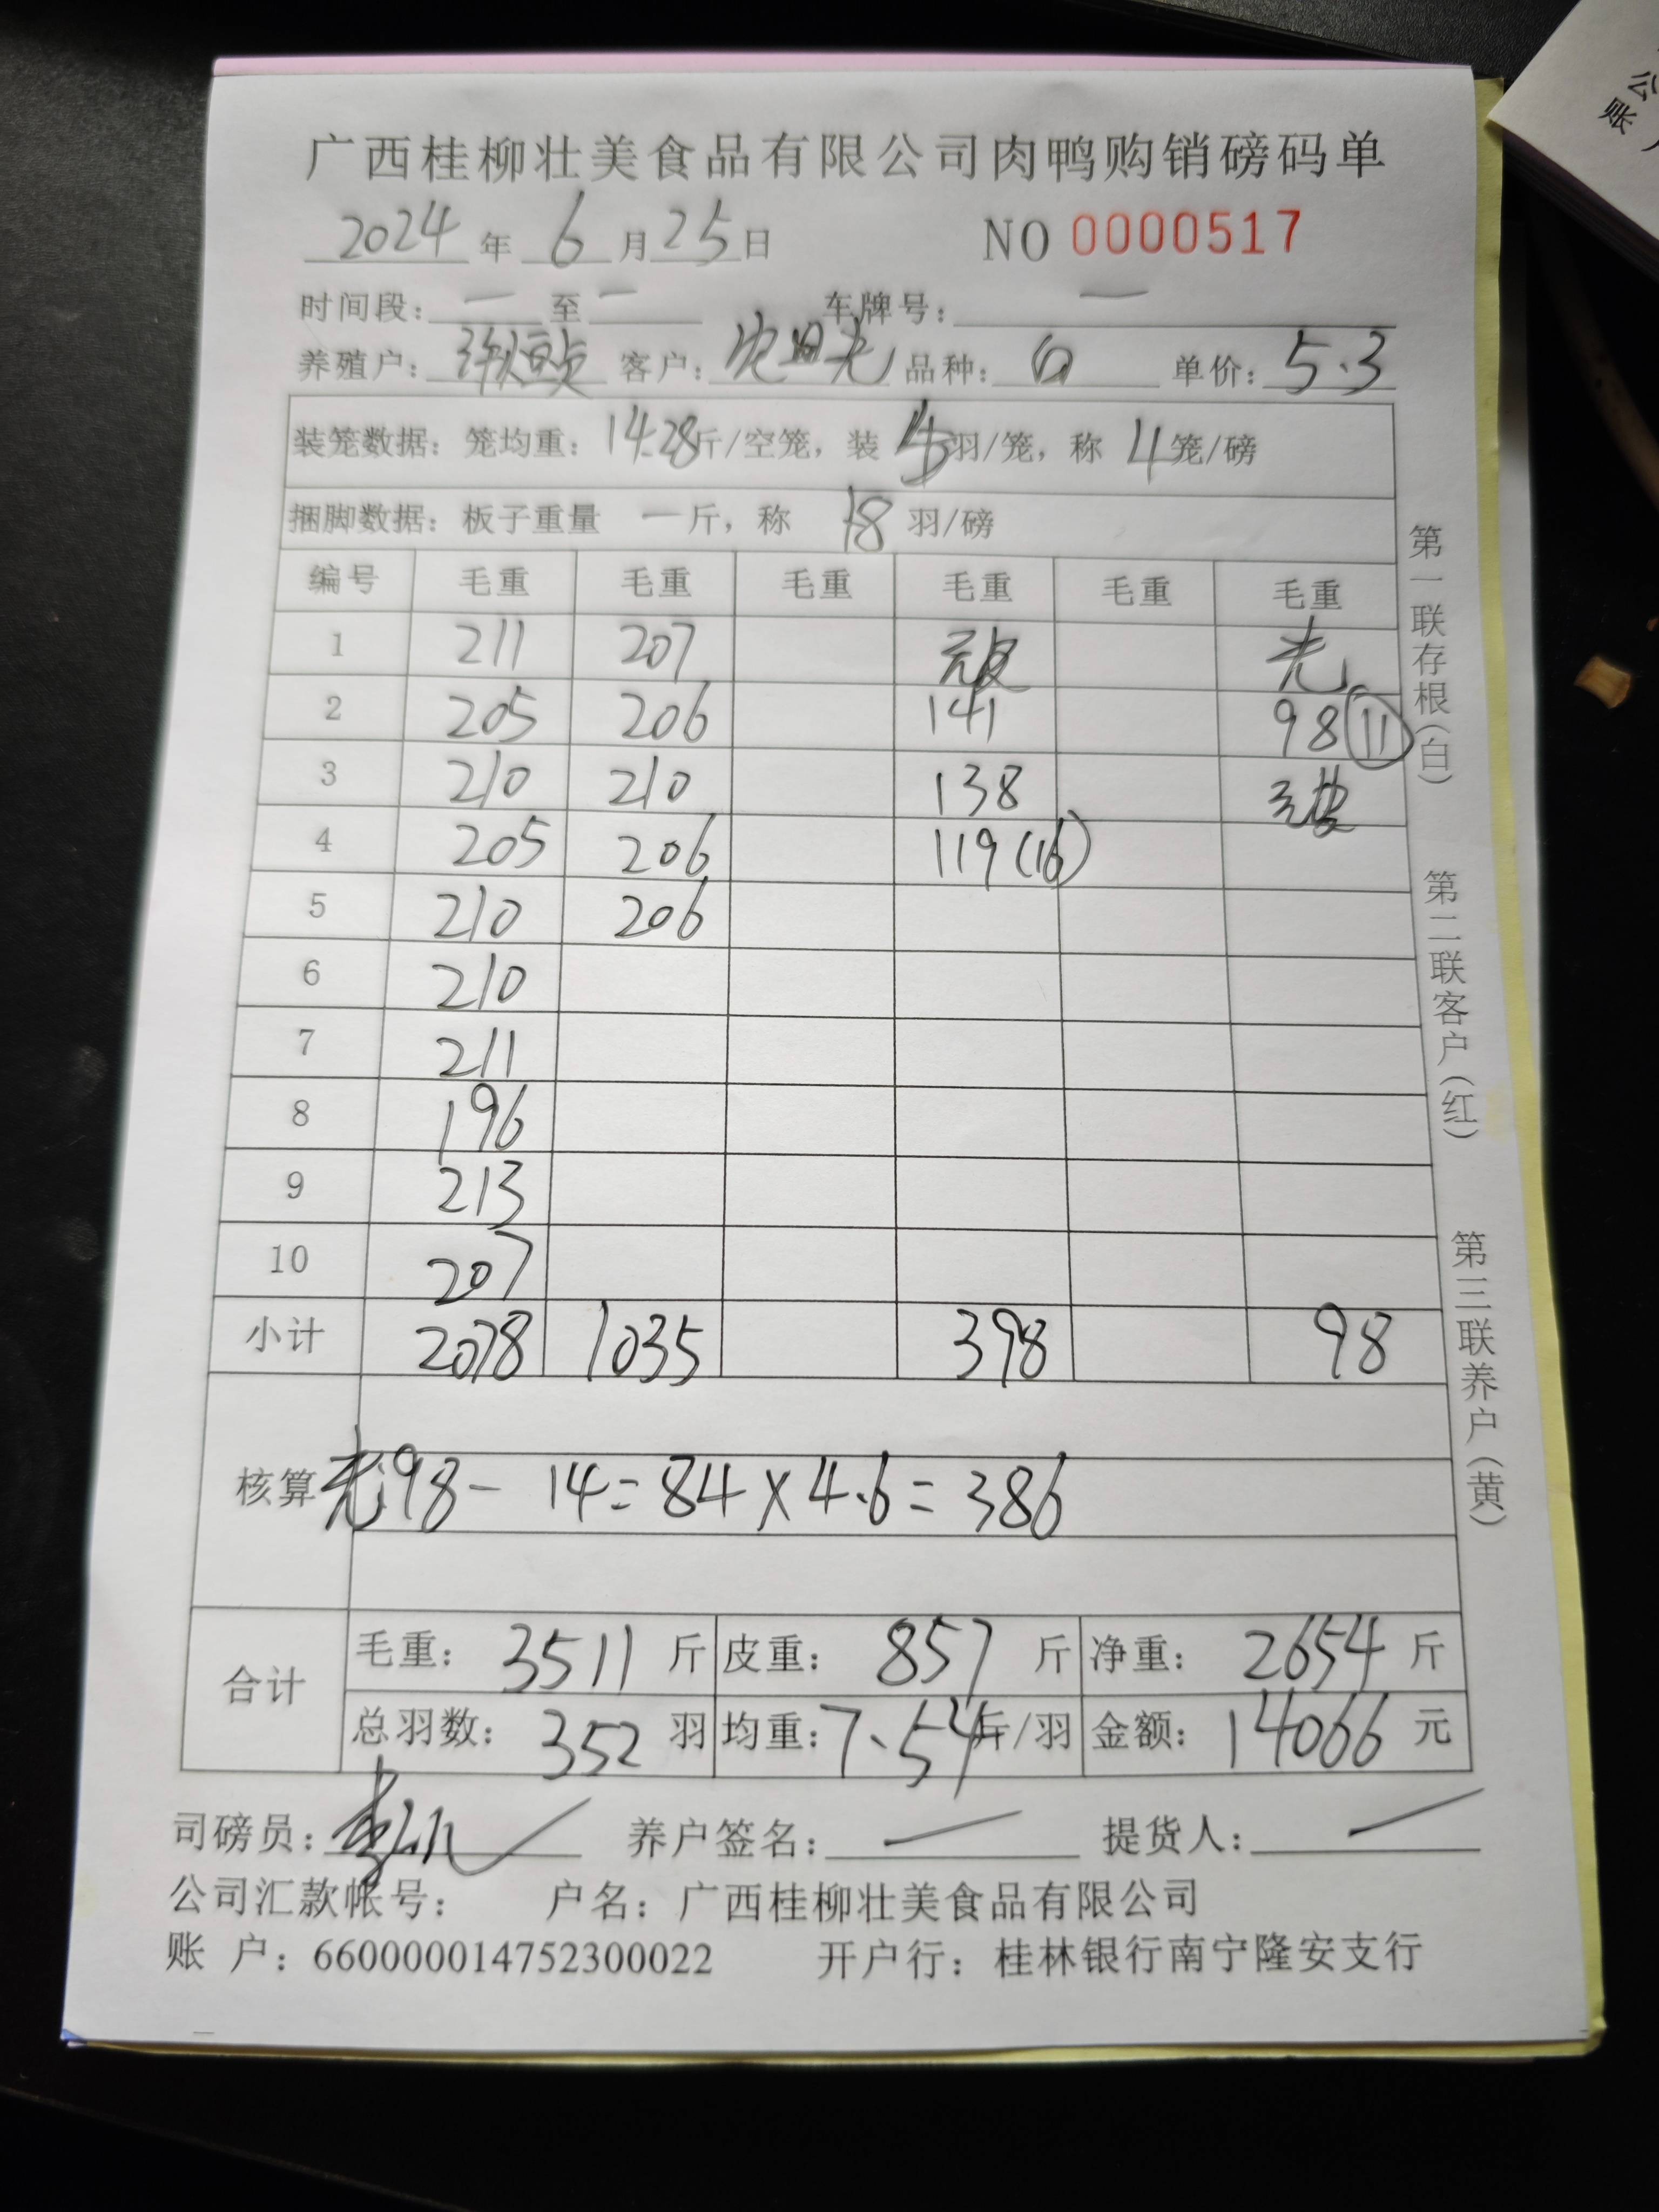 广西桂柳壮美食品有限公司肉鸭购销磅码单
2024 年 6 月 25 日 NO 0000517
时间段: 一 至 一 车牌号: 一
养殖户: 客户: 品种: 白 单价: 5.3
装笼数据: 笼均重: 14.28 斤/空笼, 装 5 羽/笼, 称 4 笼/磅
捆脚数据: 板子重量 一 斤, 称 18 羽/磅
编号 毛重 毛重 毛重 毛重 毛重 毛重
1 211 207 无皮 光
2 205 206 141 98 (11)
3 210 210 138
4 205 206 119 (16)
5 210 206
6 210
7 211
8 196
9 213
10 207
小计 2078 1035 398 98
核算 光98-14=84×4.6=386
合计 毛重: 3511 斤 皮重: 857 斤 净重: 2654 斤
总羽数: 352 羽 均重: 7.54 斤/羽 金额: 14066 元
司磅员: 养户签名: 提货人:
公司汇款帐号: 户名: 广西桂柳壮美食品有限公司
账 户: 660000014752300022 开户行: 桂林银行南宁隆安支行
第一联存根(白)
第二联客户(红)
第三联养户(黄)